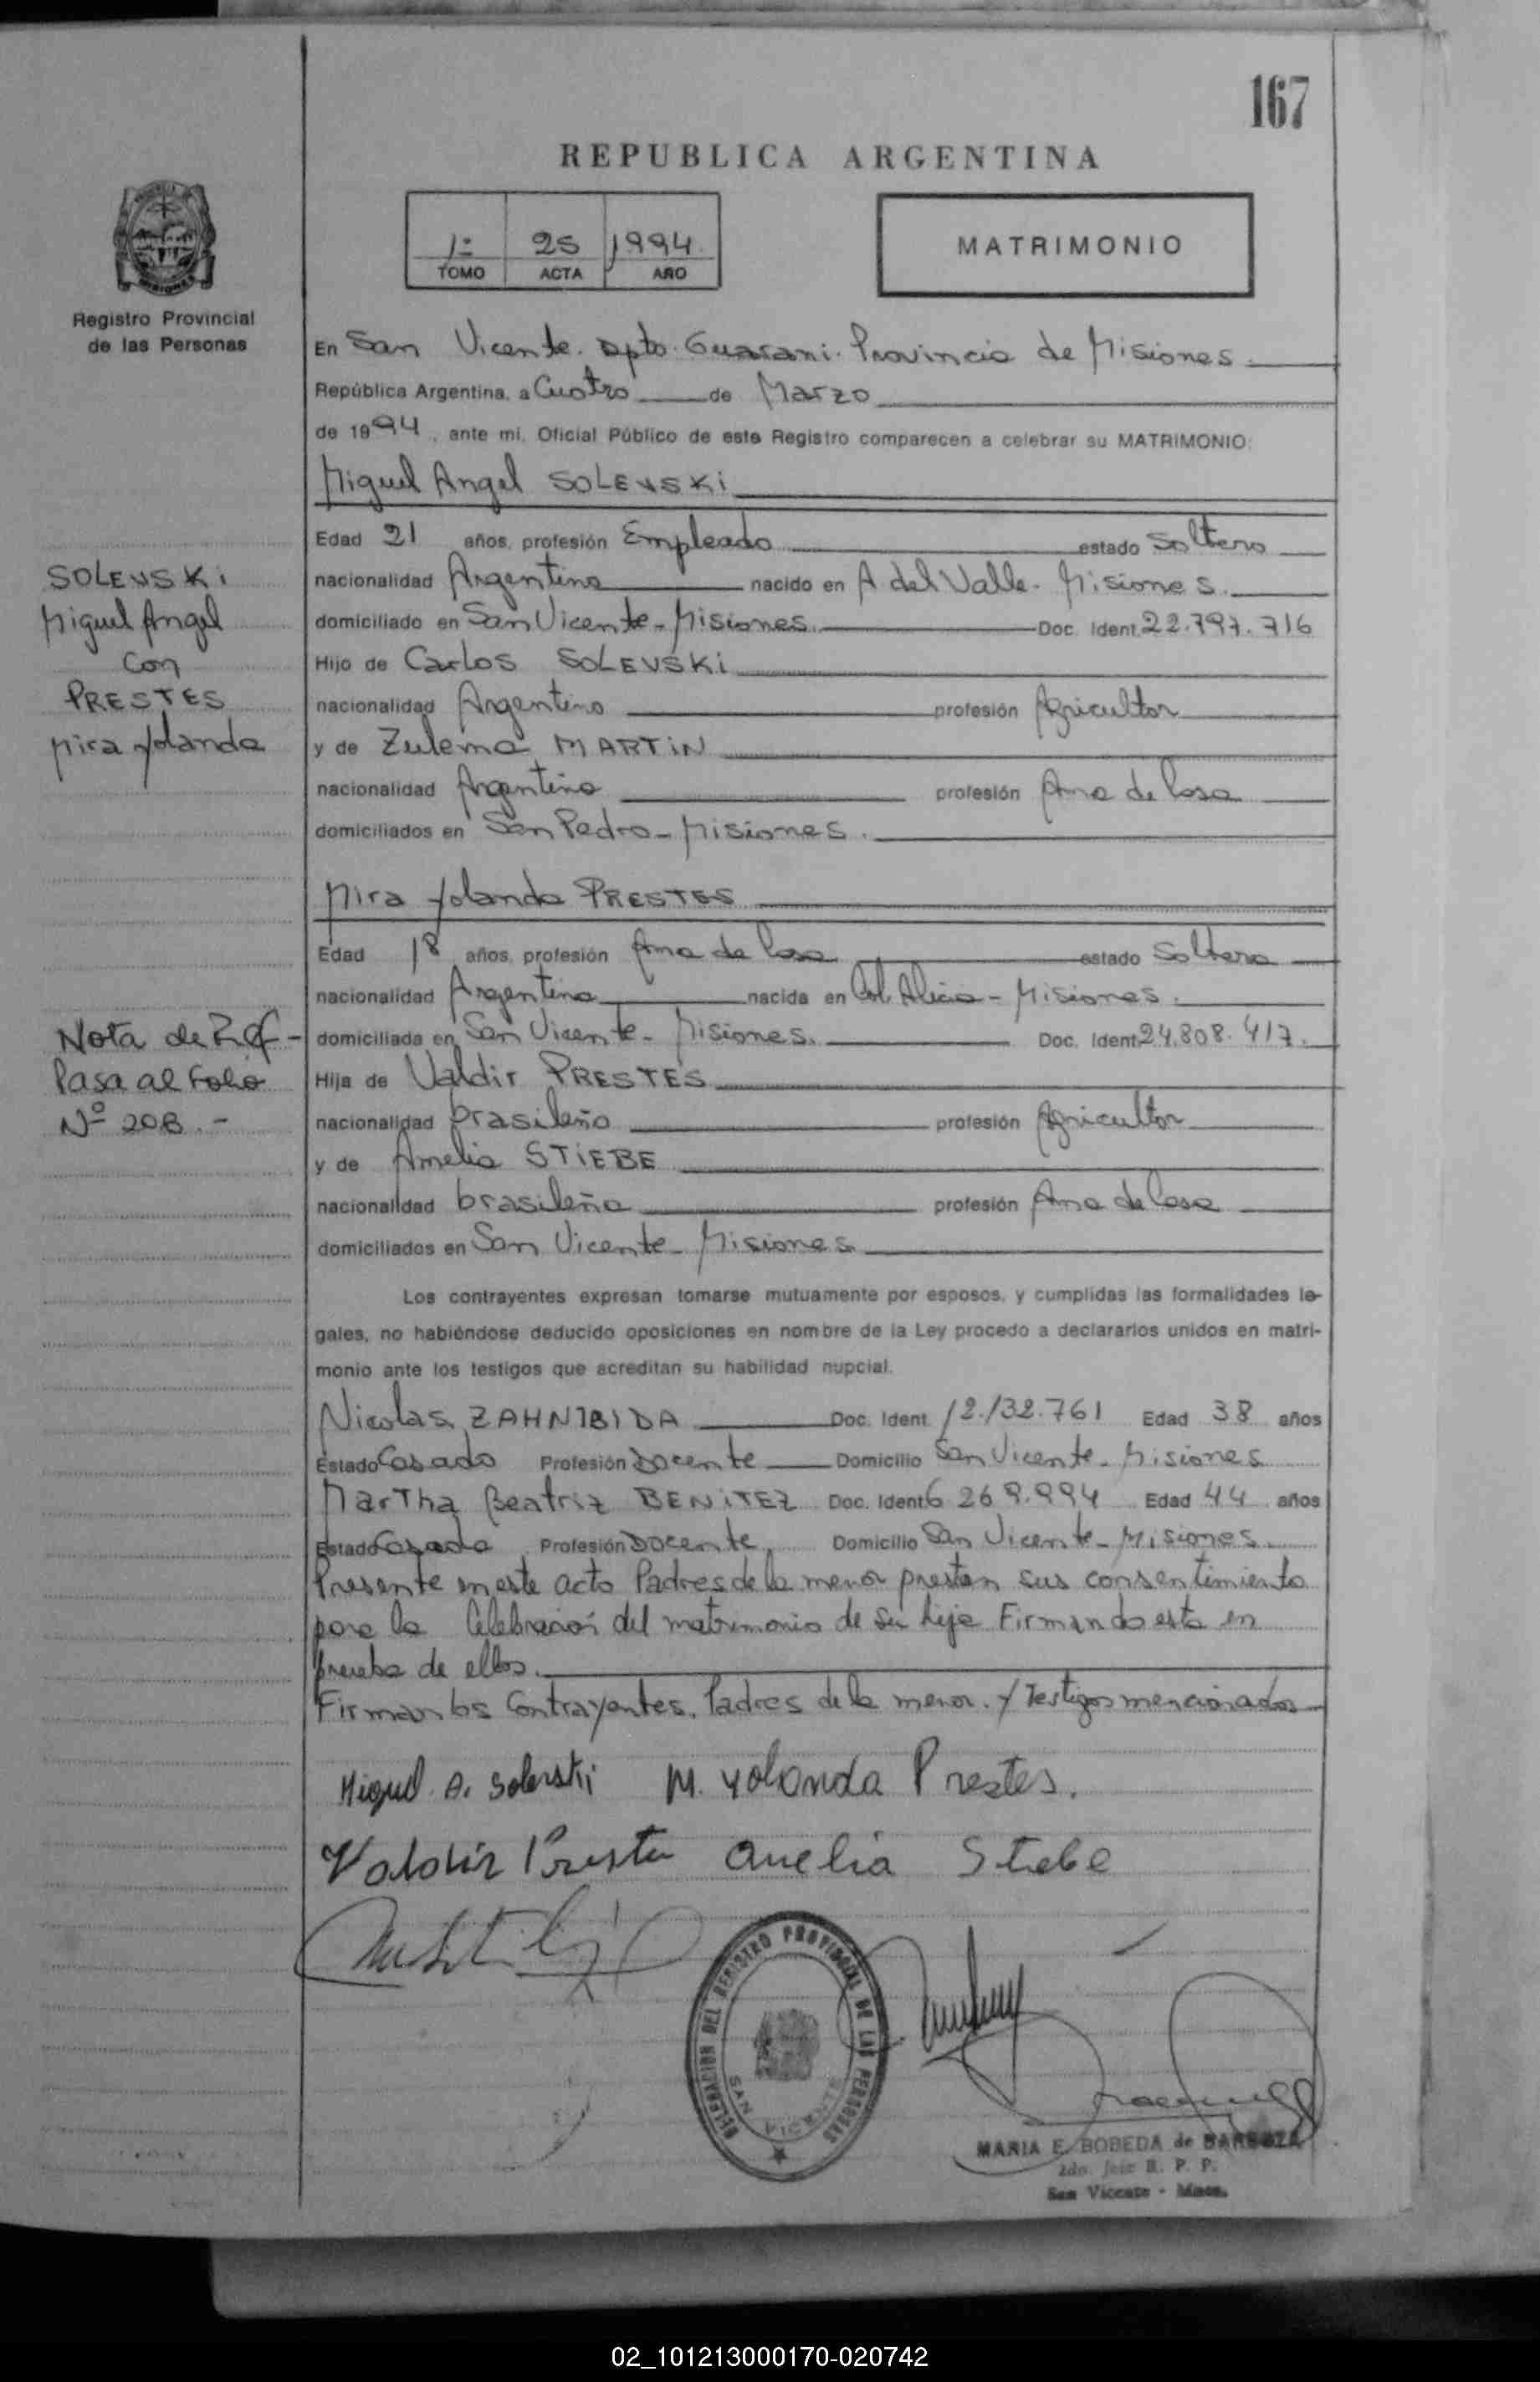 167
REPUBLICA ARGENTINA
1º 25 1994.
TOMO ACTA AÑO
MATRIMONIO
Registro Provincial
de las Personas
En San Vicente. Dpto. Guarani. Provincia de Misiones.
República Argentina, a Cuatro de Marzo
de 1994, ante mi, Oficial Público de este Registro comparecen a celebrar su MATRIMONIO:
Miguel Angel SOLENSKi
Edad 21 años, profesión Empleado estado Soltero
nacionalidad Argentina nacido en A del Valle - Misiones.
domiciliado en San Vicente - Misiones. Doc. Ident. 22.797.716
Hijo de Carlos SOLEVSKi
nacionalidad Argentino profesión Agricultor
y de Zulema MARTiN
nacionalidad Argentina profesión Ama de Casa
domiciliados en San Pedro - Misiones.
SOLENSKi
Miguel Angel
Con
PRESTES
Mira Yolanda
Mira Yolanda PRESTES
Edad 18 años, profesión Ama de Casa estado Soltera
nacionalidad Argentina nacida en Col. Alicia - Misiones.
domiciliada en San Vicente - Misiones. Doc. Ident. 24.808.417.
Hija de Valdir PRESTES
nacionalidad brasileño profesión Agricultor
y de Amelia STiEBE
nacionalidad brasileña profesión Ama de Casa
domiciliados en San Vicente - Misiones.
Nota de Ref -
Pasa al Folio
Nº 208. -
Los contrayentes expresan tomarse mutuamente por esposos, y cumplidas las formalidades le-
gales, no habiéndose deducido oposiciones en nombre de la Ley procedo a declararlos unidos en matri-
monio ante los testigos que acreditan su habilidad nupcial.
Nicolas ZAHNIBIDA Doc. Ident. 12.132.761 Edad 38 años
Estado Casado Profesión Docente Domicilio San Vicente - Misiones
Martha Beatriz BENiTEZ Doc. Ident. 6 269.994 Edad 44 años
Estado Casada Profesión Docente, Domicilio San Vicente - Misiones.
Presente en este acto Padres de la menor prestan sus consentimiento
para la Celebración del matrimonio de su hija Firmando esta en
prueba de ellos.
Firman los Contrayentes, Padres de la menor. Y Testigos mencionados
Miguel A. Solenski M. Yolanda Prestes.
Valdir Prestes Amelia Stiebe
DELEGACION DEL REGISTRO PROVINCIAL DE LAS PERSONAS
SAN VICENTE
MARIA E. BOBEDA de BARBOZA
2do. Jefe R. P. P.
San Vicente - Mnes.
02_101213000170-020742